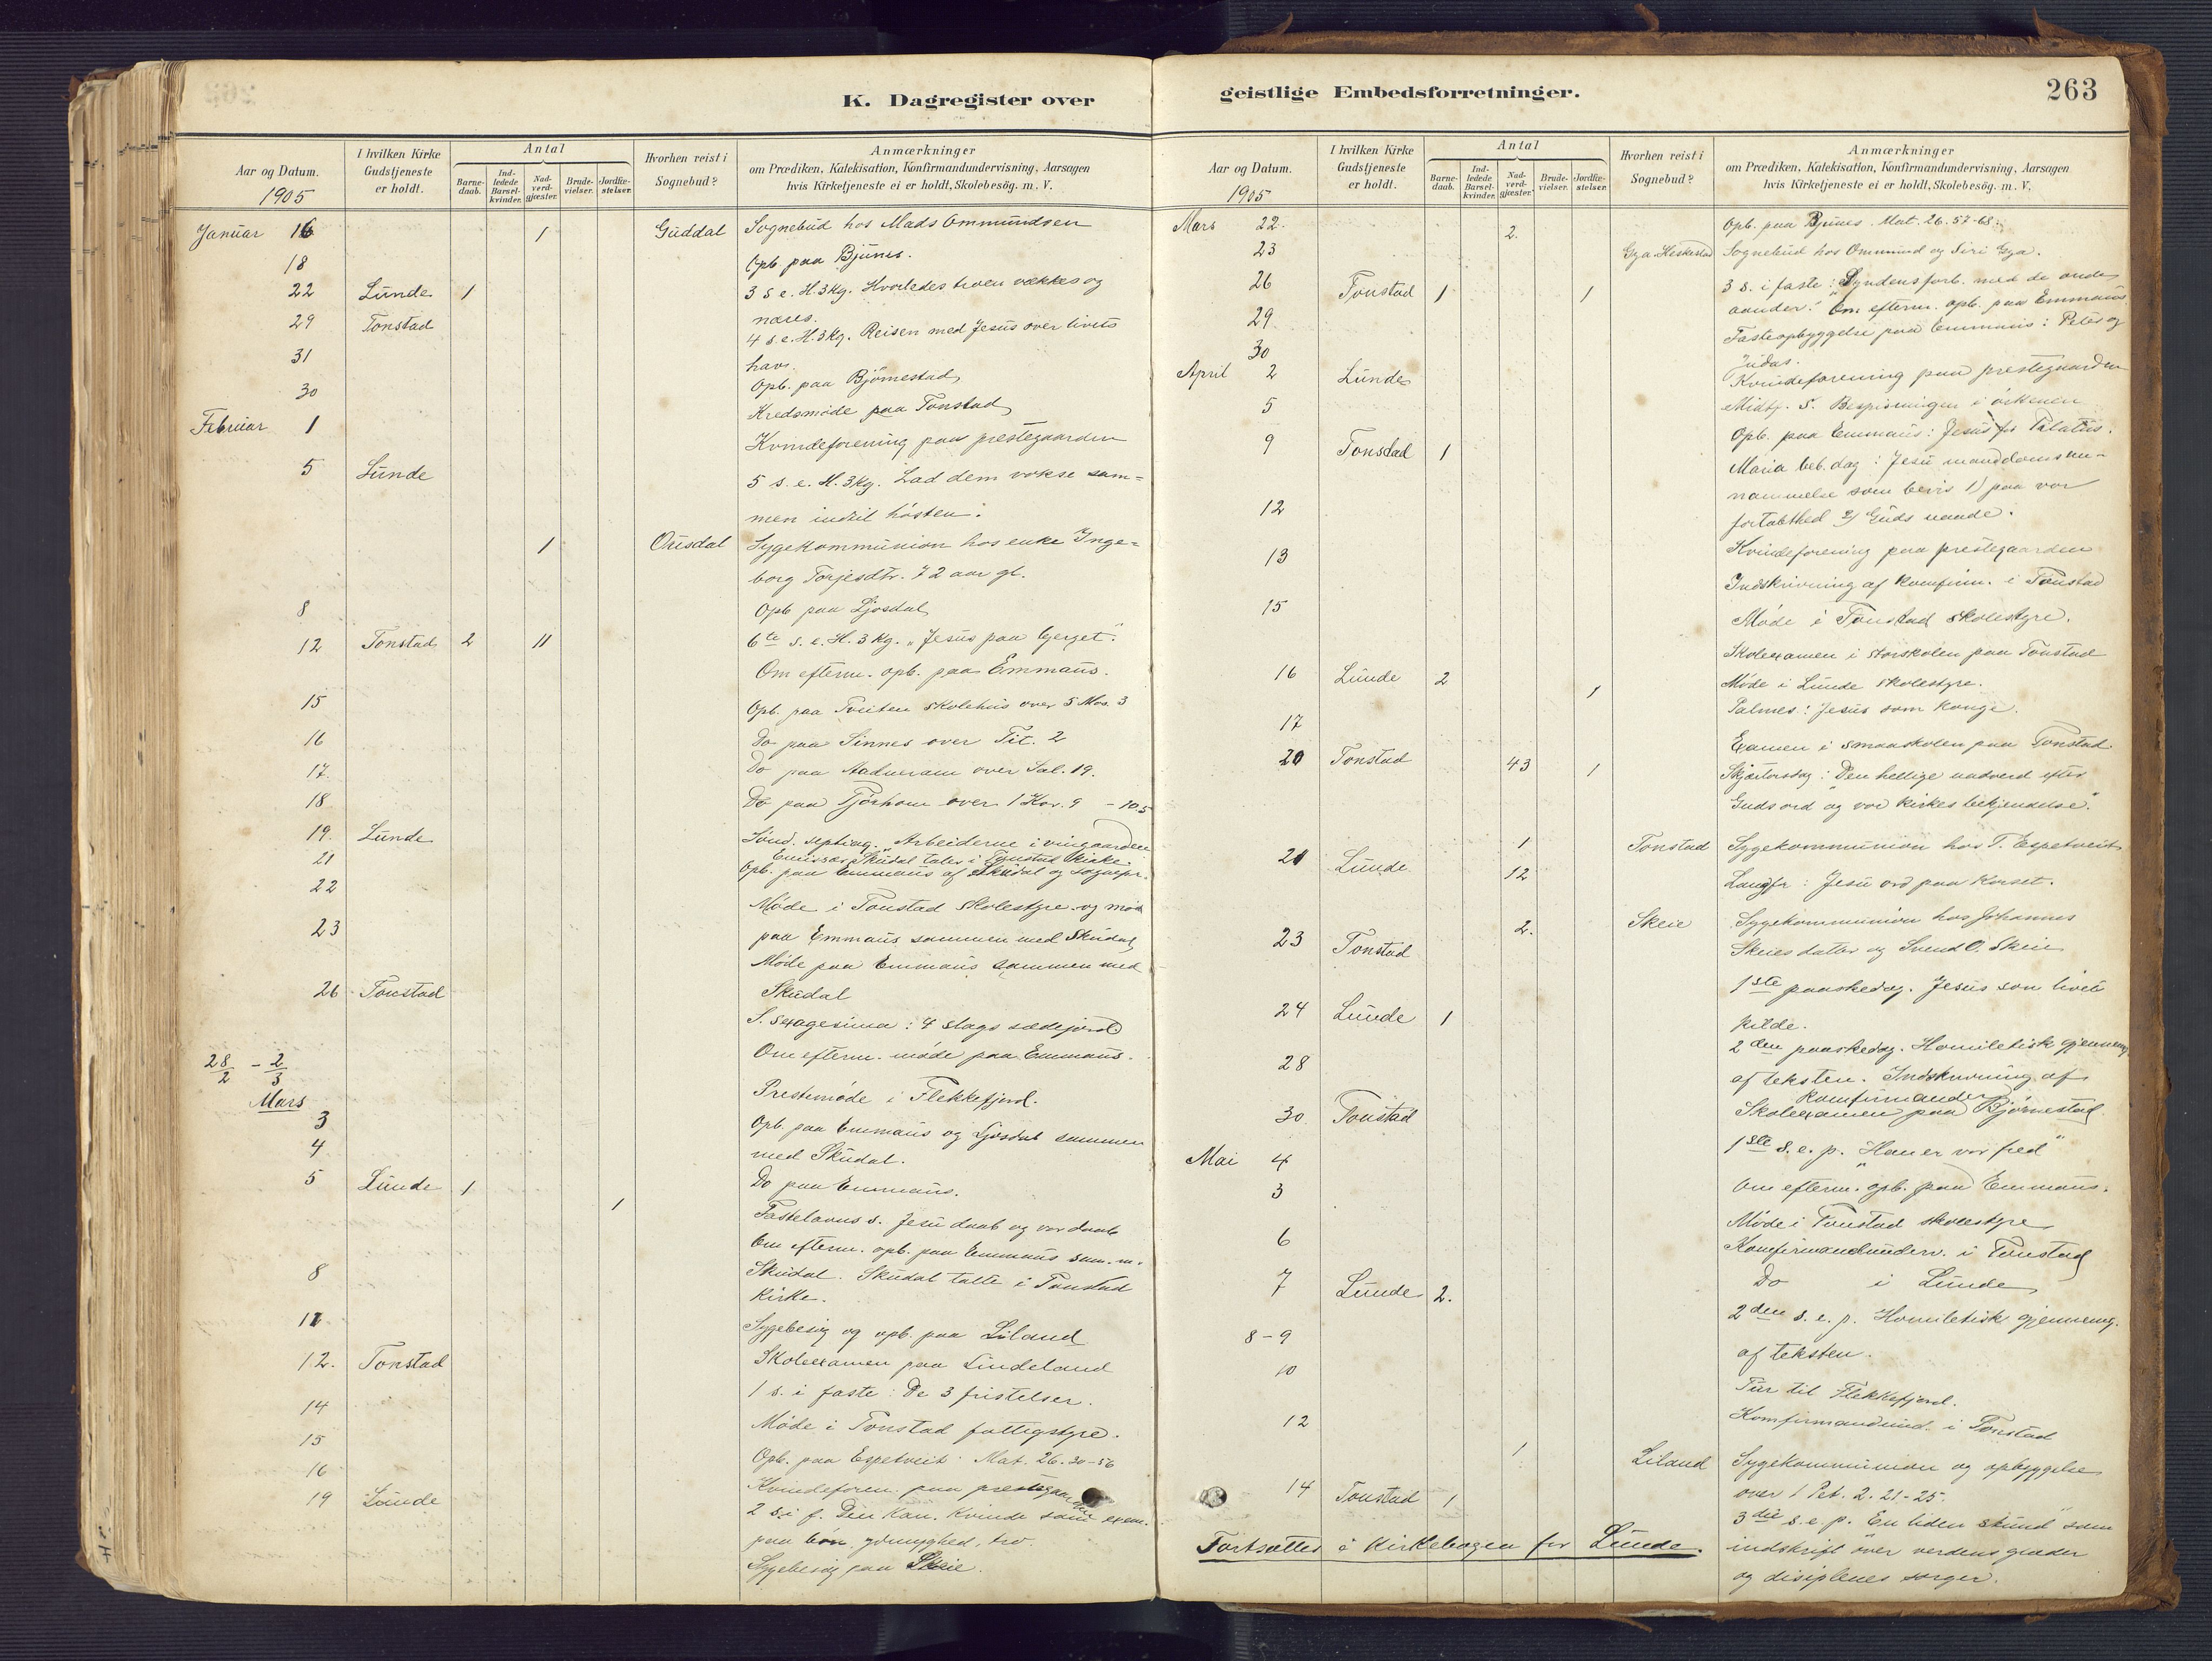 K. Dagregister over
Aar og Datum.
I hvilken Kirke Gudstjeneste er holdt.
Antal
Barnedaab.
Indledede Barselkvinder.
Nadverdgjæster.
Brudevielser.
Jordfæstelser.
Hvorhen reist i Sognebud?
Anmærkninger
om Prædiken, Katekisation, Konfirmandundervisning, Aarsagen
hvis Kirketjeneste ei er holdt, Skolebesög. m. V.
1905
Januar 16 1 Guddal Sognebud hos Mads Ommundsen
18 Opb. paa Bjunes.
22 Lunde 1 3 s. e. H. 3 kg. Hvorledes troen vækkes og
næres.
29 Tonstad 4 s. e. H. 3 kg. Reisen med Jesus over livets
hav.
31 Opb. paa Björnestad
30 Kredsmöde paa Tonstad
Februar 1 Kvindeforening paa prestegaarden
5 Lunde 5 s. e. H. 3 kg. Lad dem vokse sam=
men indtil hösten.
1 Ousdal Sygekommunion hos enke Inge=
borg Torjesdtr. 72 aar gl.
8 Opb paa Ljosdal
12 Tonstad 2 11 6te s. e. H. 3 kg. "Jesus paa bjerget".
Om efterm. opb. paa Emmaus.
15 Opb. paa Tveiten skolehus over 5 Mos. 3
16 Do paa Sinnes over Tit. 2
17. Do paa Aadneram over Sal. 19.
18 Do paa Tjörhom over 1 Kor. 9 - 10,5
19. Lunde Sönd. septuag. "Arbeiderne i vingaarden
21 Emissær Skudal taler i Tonstad kirke.
Opb. paa Emmaus af Skudal og sognepr.
22 Möde i Tonstad skolestyre og möde
paa Emmaus sammen med Skudal
23 Möde paa Emmaus sammen med
Skudal
26 Tonstad S. sexagesima: 4 slags sædejord
Om efterm. möde paa Emmaus.
28/2 - 2/3 Prestemöde i Flekkefjord.
Mars
3 Opb. paa Emmaus og Ljosdal sammen
med Skudal.
4 Do paa Emmaus.
5 Lunde 1 1 Fastelavns s. Jesu daab og vor daab
Om efterm. opb. paa Emmaus sam. m.
Skudal. Skudal talte i Tonstad
kirke.
8 Sygebesög og opb. paa Liland
11 Skoleexamen paa Lindeland
12. Tonstad 1 s. i faste: De 3 fristelser.
14 Möde i Tonstad fattigstyre.
15 Opb. paa Espetveit: Mat. 26.30-56
16 Kvindeforen. paa prestegaarden
19 Lunde 2 s. i f. Den kan. kvinde som exem.
paa bön, ydmyghed, tro.
Sygebesög paa Skeie.
geistlige Embedsforretninger.
263
Aar og Datum.
I hvilken Kirke Gudstjeneste er holdt.
Antal
Barnedaab.
Indledede Barselkvinder.
Nadverdgjæster.
Brudevielser.
Jordfæstelser.
Hvorhen reist i Sognebud?
Anmærkninger
om Prædiken, Katekisation, Konfirmandundervisning, Aarsagen
hvis Kirketjeneste ei er holdt, Skolebesög. m. V.
1905
Mars 22. Opb. paa Bjunes. Mat. 26.57-68.
23 2. Gya Heskestad Sognebud hos Ommund og Siri Gya.
26 Tonstad 1 1 3 s. i faste: Syndens forb. med de onde
aander. Om efterm. opb. paa Emmaus
29 Fasteopbyggelse paa Emmaus: Peter og
Judas.
30 Kvindeforening paa prestegaarden
April 2 Lunde Midtf. s. Bespisningen i örkenen
5 Opb. paa Emmaus: Jesus for Pilatus.
9 Tonstad 1 Maria beb. dag: Jesu manddoms an-
nammelse som bevis 1) paa vor
fortabthed 2) Guds naade.
12 Kvindeforening paa prestegaarden
13 Indskrivning af konfirm. i Tonstad
Möde i Tonstad skolestyre.
15 Skoleexamen i storskolen paa Tonstad
Möde i Lunde skolestyre.
16 Lunde 2 1 Palmes: Jesus som konge.
17 Examen i smaaskolen paa Tonstad
20 Tonstad 43 1 Skjærtorsdag: "Den hellige nadverd efter
Guds ord og vor kirkes bekjendelse".
1 Tonstad Sygekommunion hos T. Espetveit
21 Lunde 12 Langfr: Jesu ord paa korset.
2. Skeie Sygekommunion hos Johannes
Skeies datter og Svend O. Skeie
23 Tonstad 1ste paaskedag. Jesus som livets
kilde.
24 Lunde 1 2den paaskedag. Homiletisk gjennemg.
af teksten. Indskrivning af
konfirmander
28 Skoleexamen paa Björnestad
30. Tonstad 1ste s. e. p. "Han er vor fred"
Om efterm. opb. paa Emmaus.
Mai 4 Möde i Tonstad skolestyre
3 Konfirmandunderv. i Tonstad
6 Do i Lunde
7 Lunde 2. 2den s. e. p. Homiletisk gjennemg.
af teksten.
8-9 Tur til Flekkefjord.
10 Konfirmandund. i Tonstad
12 1 Liland Sygekommunion og opbyggelse
over 1 Pet. 2. 21-25.
14 Tonstad 1 3die s. e. p. "En liden stund" som
indskrift over verdens glæder
og disiplenes sorger.
Fortsættes i kirkebogen for Lunde.